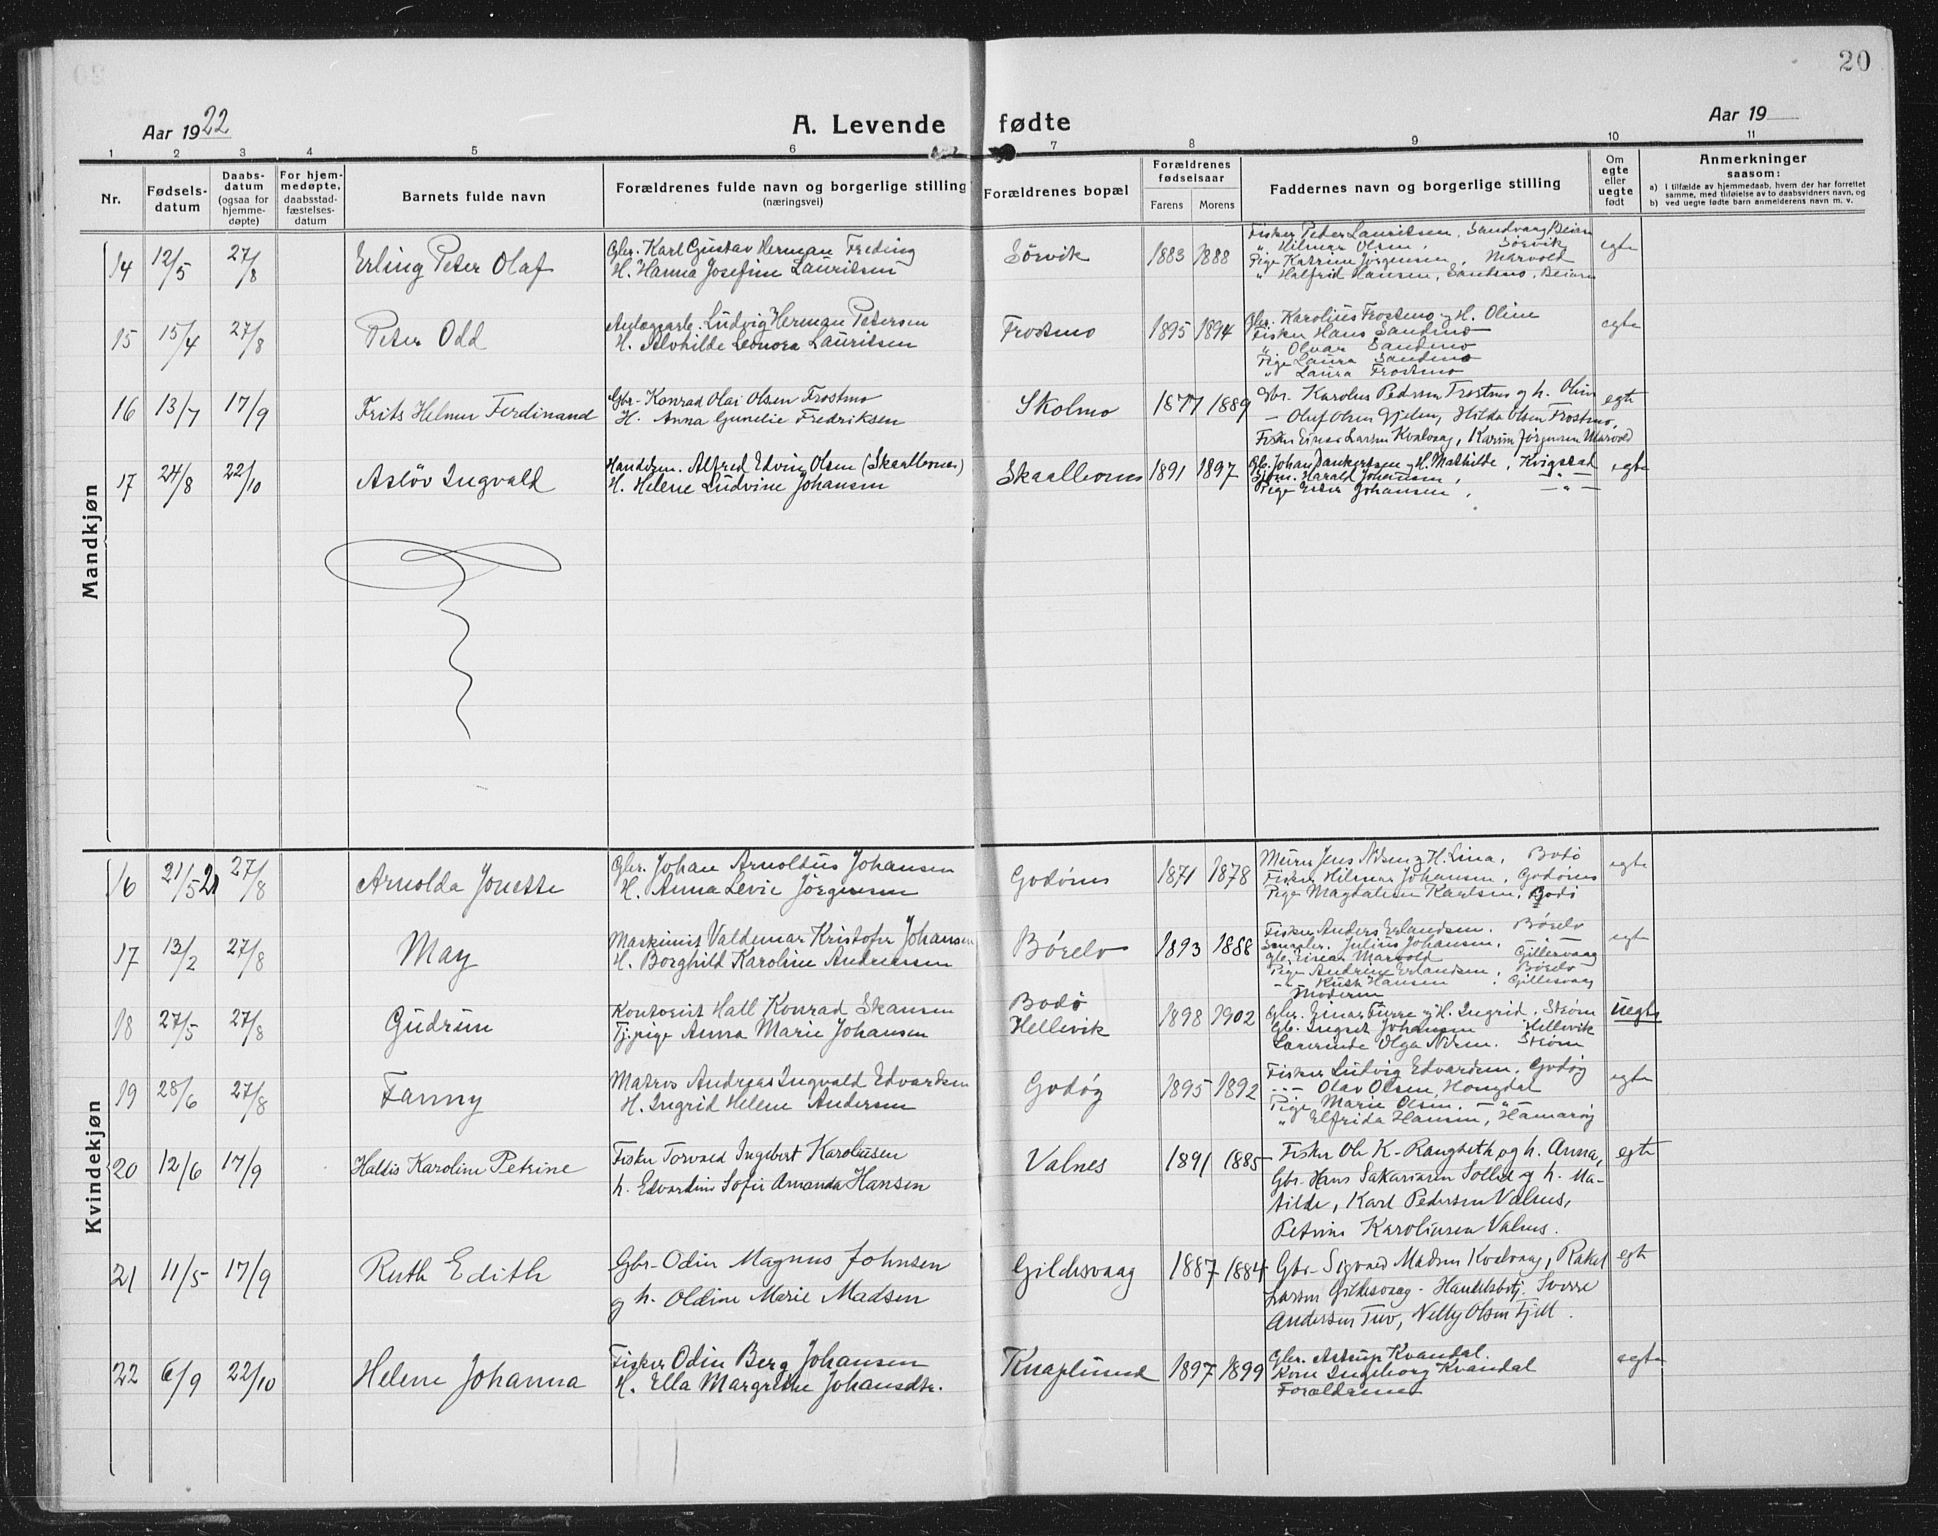 20
Aar 1922
A. Levende fødte
Aar 19
1 2 3 4 5 6 7 8 9 10 11
Nr.
Fødsels-
datum
Daabs-
datum
(ogsaa for
hjemme-
døpte)
For hjem-
medøpte,
daabsstad-
fæstelses-
datum
Barnets fulde navn
Forældrenes fulde navn og borgerlige stilling
(næringsvei)
Forældrenes bopæl
Forældrenes
fødselsaar
Farens Morens
Faddernes navn og borgerlige stilling
Om
egte
eller
uegte
født
Anmerkninger
saasom:
a) I tilfælde av hjemmedaab, hvem der har forrettet
samme, med tilføielse av to daabsvidners navn, og
b) ved uegte fødte barn anmelderens navn m. v.
Mandkjøn
14 12/5 27/8 Erling Peter Olaf
Gbr. Karl Gustav Herman Freding
H. Hanna Josefine Lauritsen
Sørvik 1883 1888
Fisker Peter Lauritsen, Sandvaag Beiarn
" Hilmar Olsen, Sørvik
Pige Katrine Jørgensen, Marvold
" Halfrid Hansen, Sandmo, Beiarn
egte
15 15/4 27/8 Peter Odd
Anlægsarb. Ludvig Herman Petersen
H. Alvhilde Leonora Lauritsen
Frostmo 1895 1894
Gbr. Karolius Frostmo og H. Oline
Fisker Hans Sandmo
" Olvar Sandmo
Pige Laura Sandmo
" Laura Frostmo
egte
16 13/7 17/9 Frits Helmer Ferdinand
Gbr- Konrad Olai Olsen Frostmo
H. Anna Gunelie Fredriksen
Skolmo 1877 1889
Gbr. Karolus Pedersen Frostmo og h. Oline
- Oluf Olsen Gjelen, Hilda Olsen Frostmo,
Fisker Einar Larsen Kvalvaag, Karine Jørgensen Marvold
egte
17 24/8 22/10 Asløv Ingvald
Handelsm. Alfred Edvin Olsen (Skaalbones)
H. Helene Ludvine Johansen
Skaalbones 1891 1897
Gb. Johan Dankertsen og H. Mathilde, Kvigstad
Harald Johansen, - " -
Pige Ester Johansen, - " -
egte
Kvindekjøn
16 21/5 21 27/8 Arnolda Jonette
Gbr. Johan Arnoldus Johansen
H. Anna Levie Jørgensen
Godønes 1871 1878
Murer Jens Nilsen og H. Lina, Bodø
Fisker Hilmar Johansen, Godønes
Pige Magdalene Karlsen, Bodø
egte
17 13/2 27/8 May
Maskinist Valdemar Kristofer Johansen
H. Borghild Karoline Andreassen
Børelv 1893 1888
Fisker Anders Erlandsen. Børelv
Julius Johansen, - " -
Gbr. Einar Marvold Gillesvaag
Pige Andrine Erlandsen, Børelv
- " - Ruth Hansen, Gillesvaag
egte
18 27/5 27/8 Gudrun
Kontorist Hall Konrad Skansen
Tj.pige Anna Marie Johansen
Bodø
Hellevik
1898 1902
Moderen
Gbr. Einar Furre og H. Ingrid, Strøm
Gb. Ingret Johansen Hellevik
Lærerinde Olga Nilsen. Strøm
uegte
19 28/6 27/8 Fanny
Matros Andreas Ingvald Edvardsen
H. Ingrid Helene Andersen
Godøy 1895 1892
Fisker Ludvig Edvardsen, Godøy
- " - Olav Olsen, Hongdal
Pige Marie Olsen, - " -
" Elfrida Hansen, Hamarøy
egte
20 12/6 17/9 Haldis Karoline Petrine
Fisker Torvald Ingebert Karoliusen
h. Edvardine Sofie Amanda Hansen
Valnes 1891 1885
- Fisker Ole K- Rangsæth og h. Anna,
Gbr- Hans Sakariasen Solli og h. Ma-
tilde, Karl Pedersen Valnes,
Petrine Karoliusen Valnes.
egte
21 11/5 17/9 Ruth Edith
Gbr- Odin Magnus Johnsen
og h. Oldine Marie Madsen
Gildesvaag 1887 1884
- Gbr- Sigvald Madsen Kvalvaag, Rakel
Larsen Gildesvaag - Handelsbetj. Sverre
Andersen Tuv, Nelly Olsen Fjell.
egte
22 6/9 22/10 Helene Johanna
Fisker Odin Berg Johansen
H. Ella Margrethe Johansdtr.
Knaplund 1897 1899
Gbr. Astrup Kvandal.
Kone Ingeborg Kvandal
Forældrene
egte